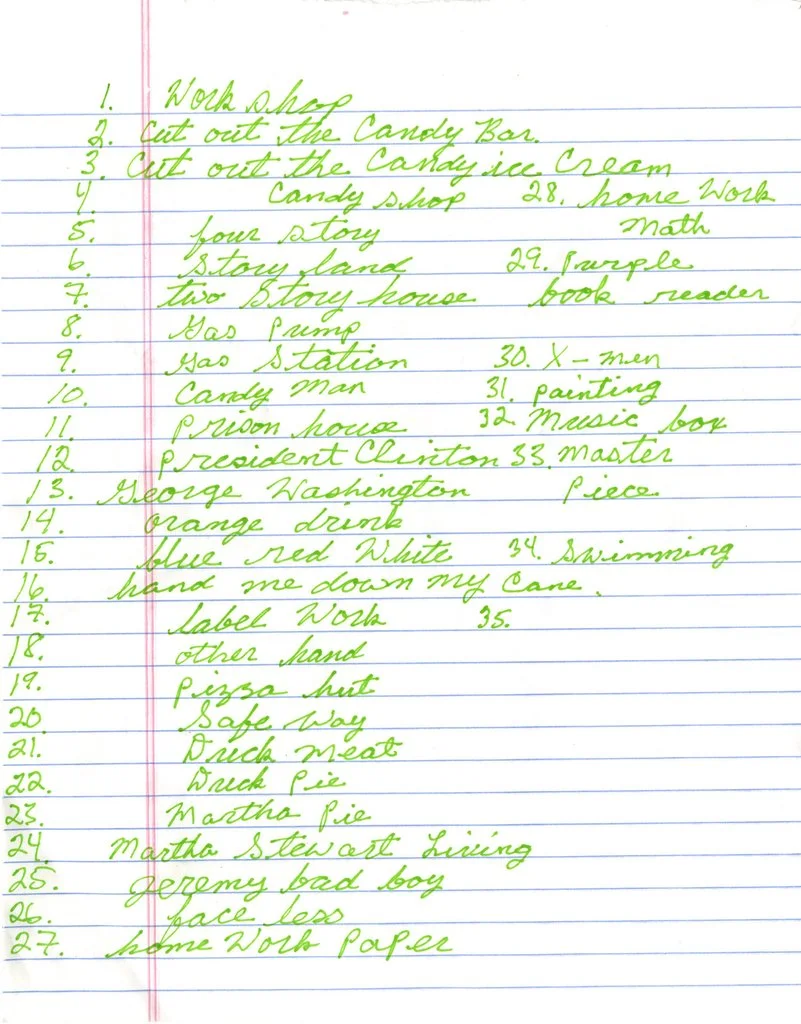 1. Work shop
2. Cut out the Candy Bar.
3. Cut out the Candy ice Cream
4. Candy shop
5. four story
6. Story land
7. two Story house
8. Gas Pump
9. Gas Station
10. Candy Man
11. prison house
12. president Clinton
13. George Washington
14. orange drink
15. blue red White
16. hand me down my Cane.
17. label Work
18. other hand
19. pizza hut
20 Safe Way
21. Duck meat
22. Duck Pie
23. Martha Pie
24. Martha Stewart Living
25. jeremy bad boy
26. face less
27. home Work PaPer
28. home Work
Math
29. Purple
book reader
30. X-men
31. painting
32. Music box
33. Master
Piece
34. Swimming
35.